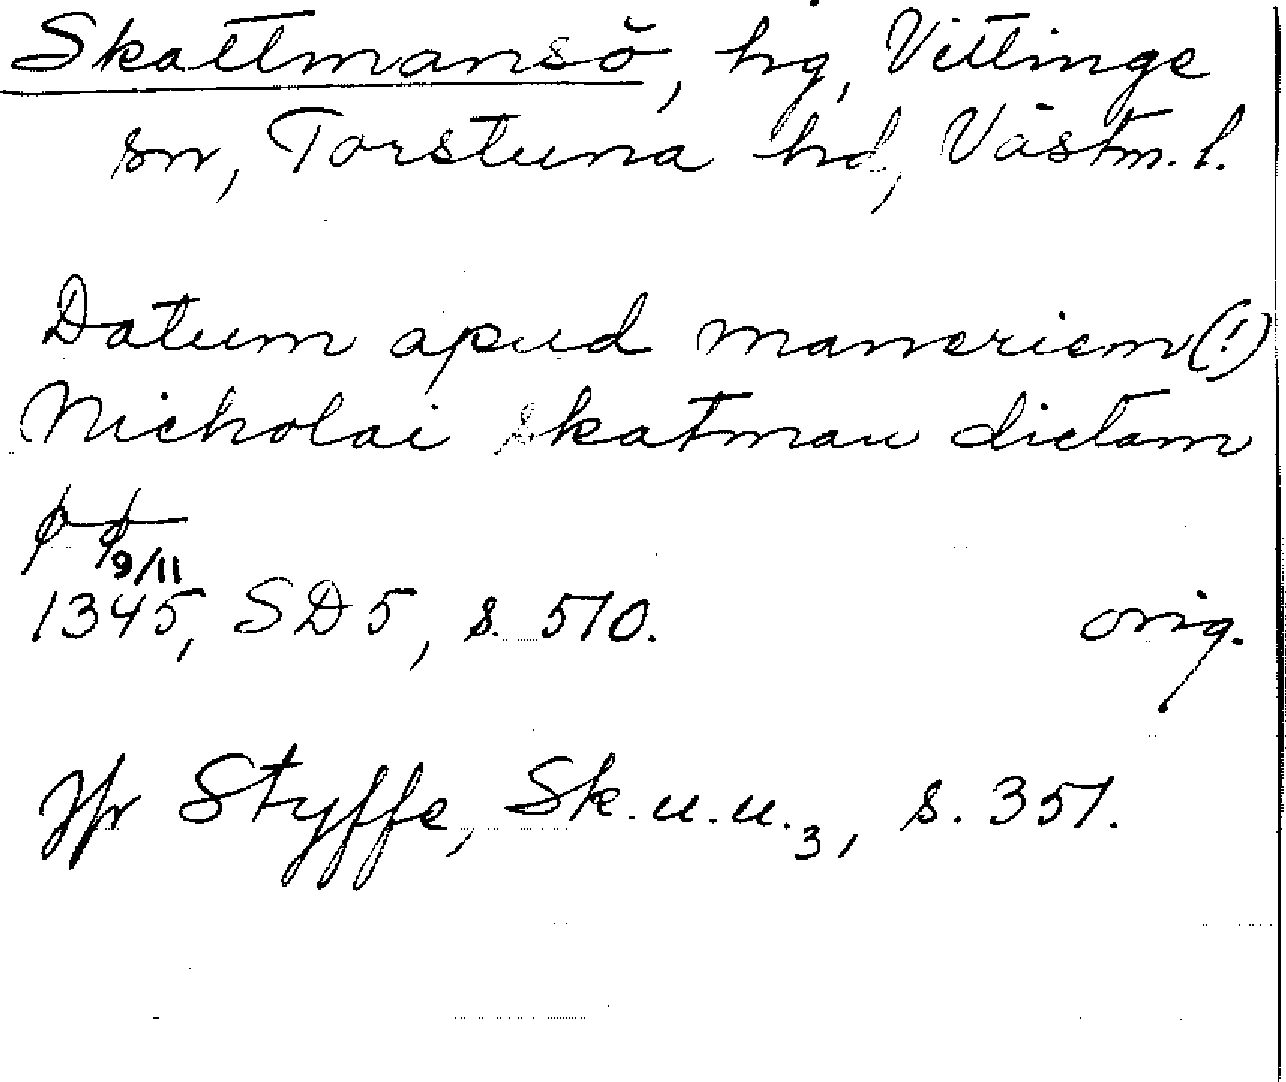 Skattmansö, hg, Vittinge
sn, Torstuna hd, Västm. l.
Datum apud maneriem (!)
Nicholai skatman dictam
9/11
1345, SD 5, s. 510. orig.
Jfr Styffe, Sk.u.u.3, s. 351.